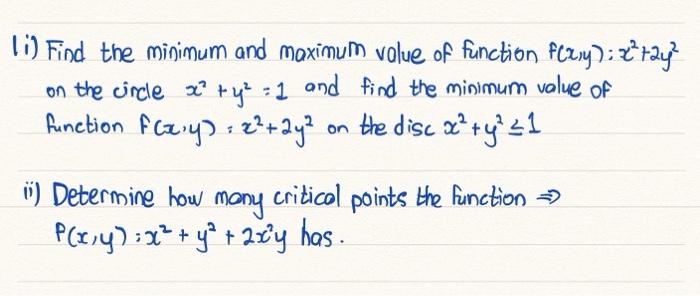 1i) Find the minimum and maximum value of function f(x,y) = x²+2y²
on the circle x² + y² = 1 and find the minimum value of
function f(x,y) = x²+2y² on the disc x² + y² ≤ 1
ii) Determine how many critical points the function ⇒
f(x,y) = x² + y² + 2x²y has.